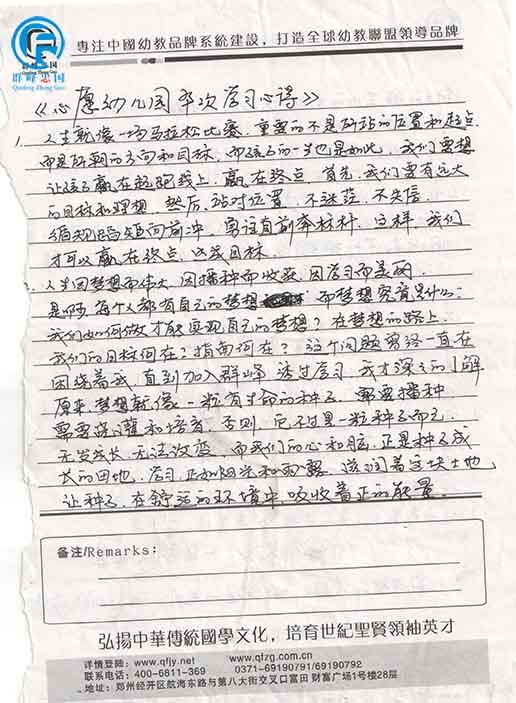 群峰志国
Qunfeng Zhong Guo
專注中國幼教品牌系統建設，打造全球幼教聯盟領導品牌
《心愿幼儿园本次学习心得》
1. 人生就像一场马拉松比赛，重要的不是所站的位置和起点
而是所朝的方向和目标，而孩子的一生也是如此，我们要想
让孩子赢在起跑线上，赢在终点，首先，我们要有远大
的目标和理想，然后，站对位置，不迷茫，不失信，
循规蹈矩向前冲，勇往直前奔标杆，这样，我们
才可以赢在终点，达成目标。
人生因梦想而伟大，因播种而收获，因学习而美丽，
是呀，每个人都有自己的梦想 而梦想究竟是什么？
我们如何做才能实现自己的梦想？在梦想的路上，
我们的目标何在？指南何在？这个问题始终一直在
困绕着我，直到加入群峰，透过学习，我才深深的了解
原来，梦想就像一粒有生命的种子，需要播种
需要浇灌和培育，否则，它不过是一粒种子而已，
无发成长，无法改变，而我们的心和脑，正是种子成
长的田地，学习，正如阳光和雨露，滋润着这块土地，
让种子，在舒适的环境中，吸收着正的能量。
备注/Remarks:
弘揚中華傳統國學文化，培育世紀聖賢領袖英才
详情登陆：www.qfjy.net www.qfzg.com.cn
联系电话：400-6811-369 0371-69190791/69190792
地址：郑州经开区航海东路与第八大街交叉口富田 财富广场1号楼28层